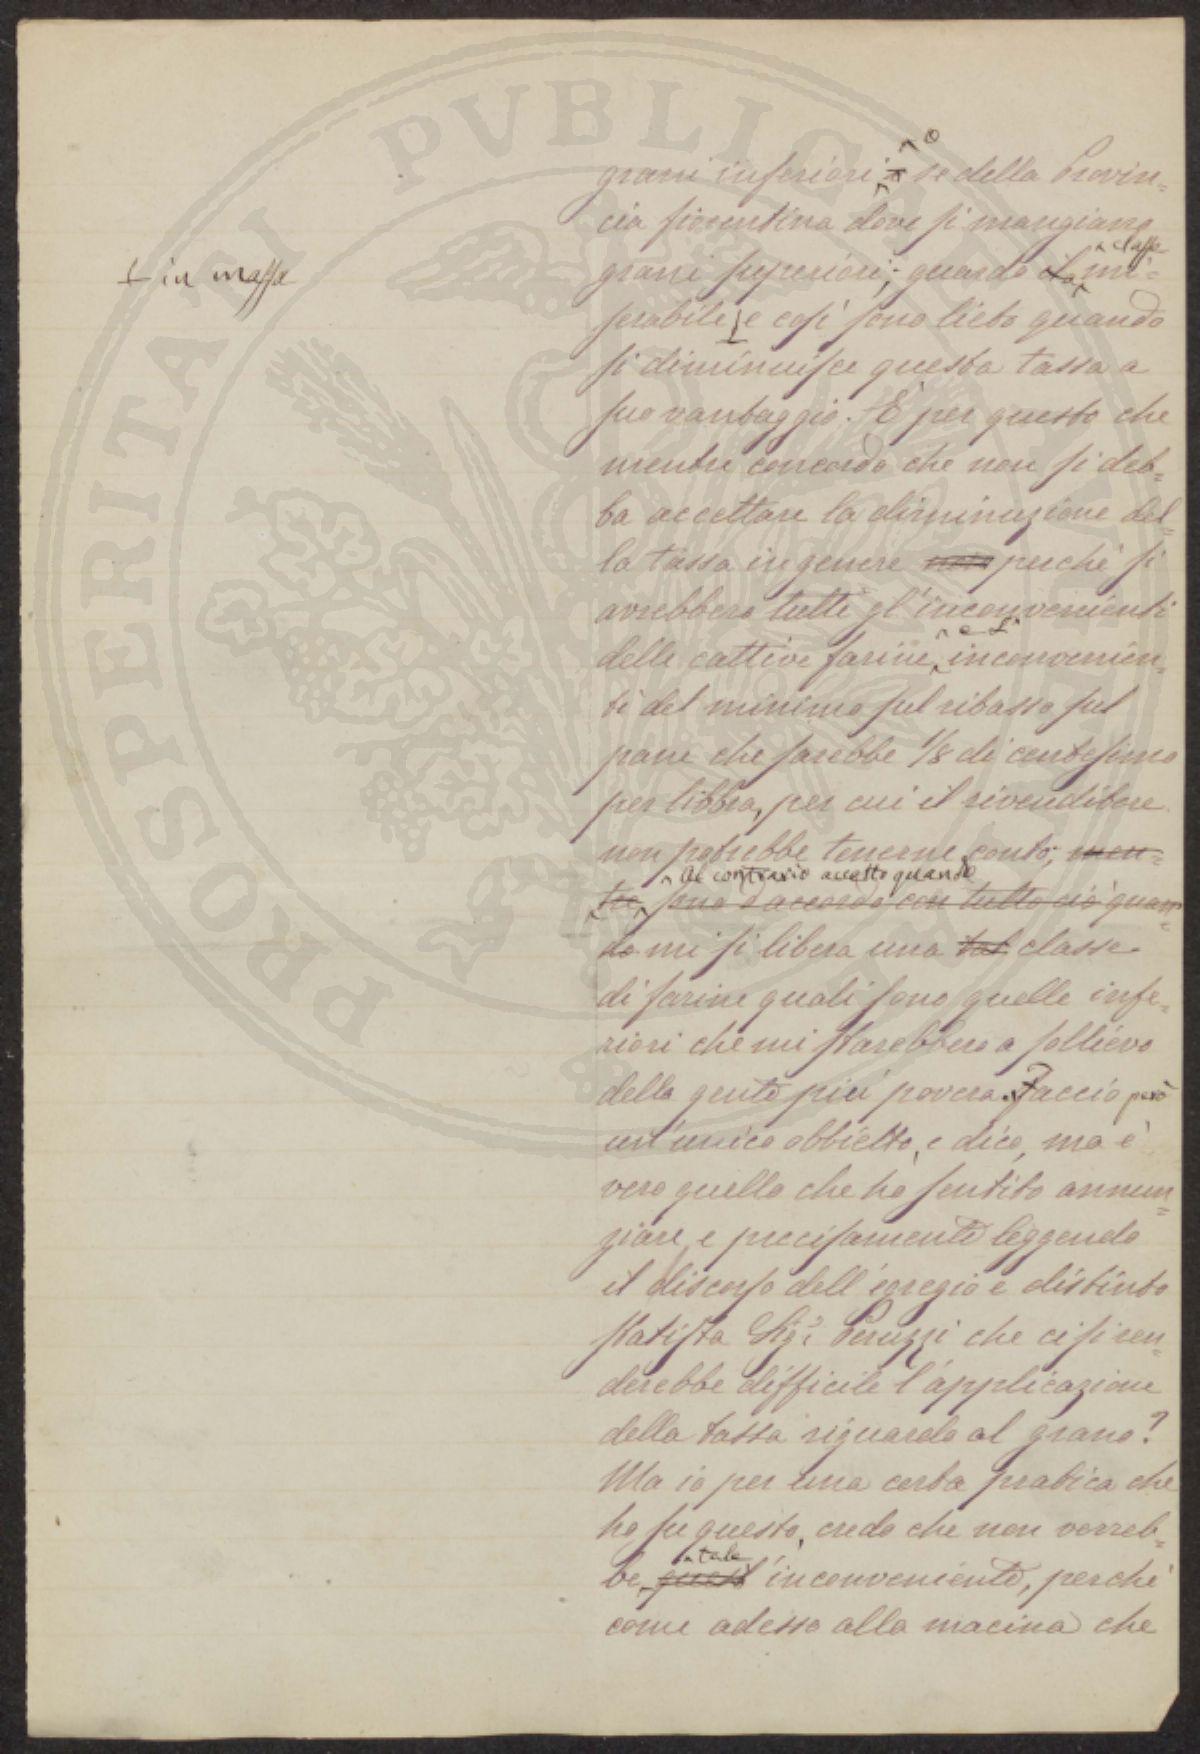 PVBLICAE PROSPERITATI
grani inferiori, o se della Provin=
cia fiorentina dove si mangiano
grani superiori; guardo la classe mi=
serabile
⊥ in massa
e così sono lieto quando
si diminuisce questa tassa a
suo vantaggio. È per questo che
mentre concordo che non si deb=
ba accettare la diminuzione del=
la tassa in genere non perché si
avrebbero tutti gl'inconvenienti
delle cattive farine, e l' inconvenien=
ti del minimo sul ribasso sul
pane che sarebbe 1/8 di centesimo
per libbra, per cui il rivenditore
non potrebbe tenerne conto; men=
al contrario accetto quando
tre sono d'accordo con tutto ciò quan=
do mi si libera una tal classe
di farine quali sono quelle infe=
riori che mi starebbero a sollievo
della gente più povera. Faccio però
un'unico obbietto, e dico, ma è
vero quello che ho sentito annun=
ziare, e precisamente leggendo
il discorso dell'egregio e distinto
statista Sigr. Peruzzi che ci si ren=
derebbe difficile l'applicazione
della tassa riguardo al grano?
Ma io per una certa pratica che
ho su questo, credo che non verreb=
be tale quest' inconveniente, perché
come adesso alla macina che